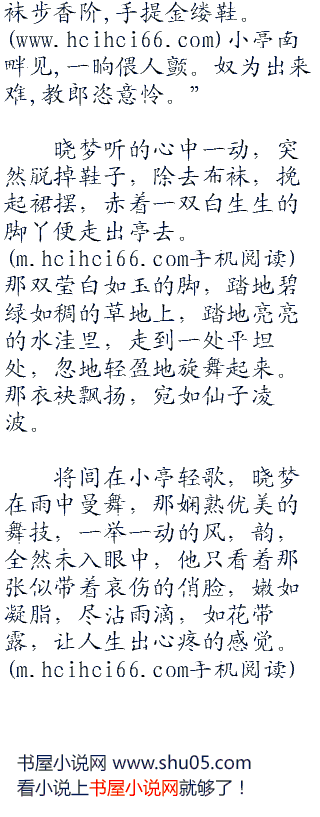 袜步香阶,手提金缕鞋。
(www.hcihci66.com)小亭南
畔见,一晌偎人颤。奴为出来
难,教郎恣意怜。”
晓梦听的心中一动，突
然脱掉鞋子，除去布袜，挽
起裙摆，赤着一双白生生的
脚丫便走出亭去。
(m.hcihci66.com手机阅读)
那双莹白如玉的脚，踏地碧
绿如稠的草地上，踏地亮亮
的水洼里，走到一处平坦
处，忽地轻盈地旋舞起来。
那衣袂飘扬，宛如仙子凌
波。
将闾在小亭轻歌，晓梦
在雨中曼舞，那娴熟优美的
舞技，一举一动的风，韵，
全然未入眼中，他只看着那
张似带着哀伤的俏脸，嫩如
凝脂，尽沾雨滴，如花带
露，让人生出心疼的感觉。
(m.hcihci66.com手机阅读)
书屋小说网 www.shu05.com
看小说上书屋小说网就够了！